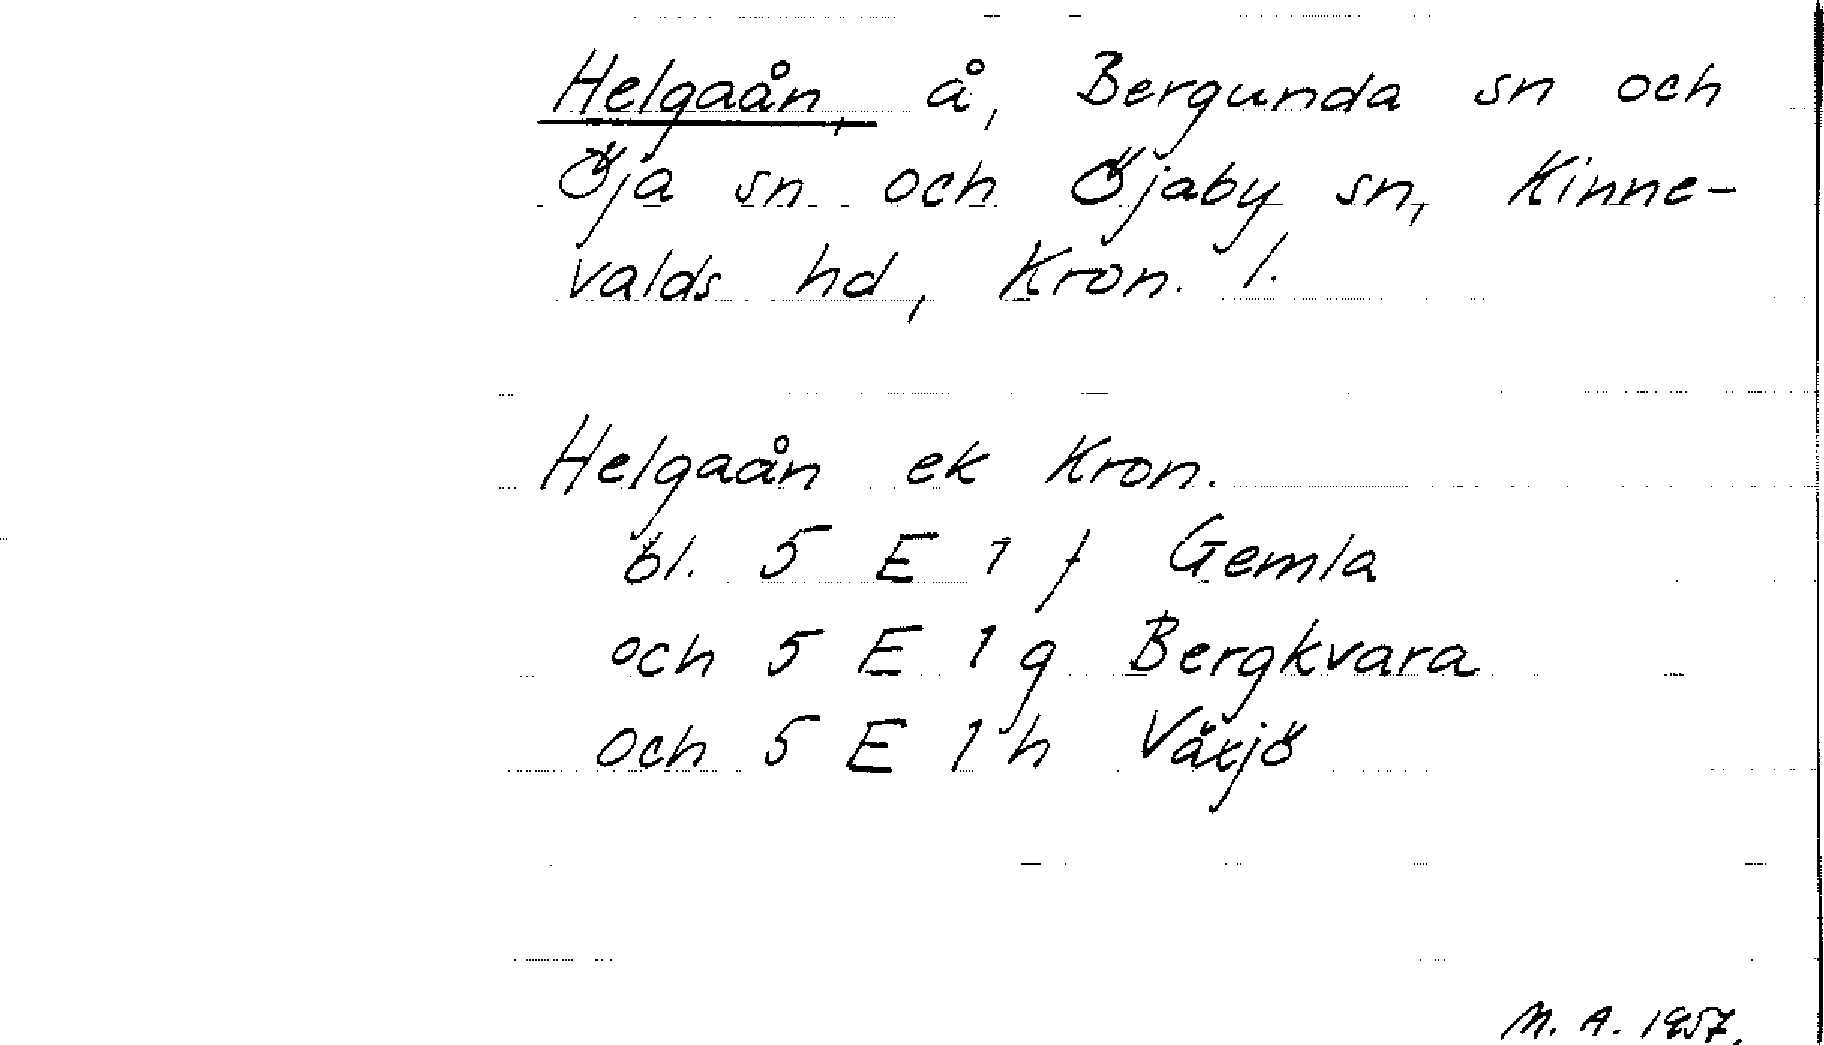 Helgaån, å, Bergunda sn och
Öja sn och Öjaby sn, Kinne-
valds hd, Kron. l.
Helgaån ek Kron.
bl. 5 E 1 f Gemla
och 5 E 1 g Bergkvara
och 5 E 1 h Växjö
M. A. 1957.